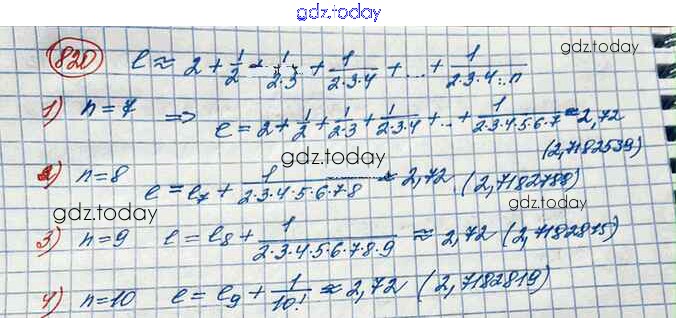 gdz.today
820 e ≈ 2 + 1/2 + 1/2·3 + 1/2·3·4 + ... + 1/2·3·4...n gdz.today
1) n=7 ⇒ e = 2 + 1/2 + 1/2·3 + 1/2·3·4 + ... + 1/2·3·4·5·6·7 ≈ 2,72
(2,7182539)
gdz.today
2) n=8 e = e₇ + 1/2·3·4·5·6·7·8 ≈ 2,72 (2,7182788)
gdz.today gdz.today
3) n=9 e = e₈ + 1/2·3·4·5·6·7·8·9 ≈ 2,72 (2,7182815)
4) n=10 e = e₉ + 1/10! ≈ 2,72 (2,7182819)
gdz.today